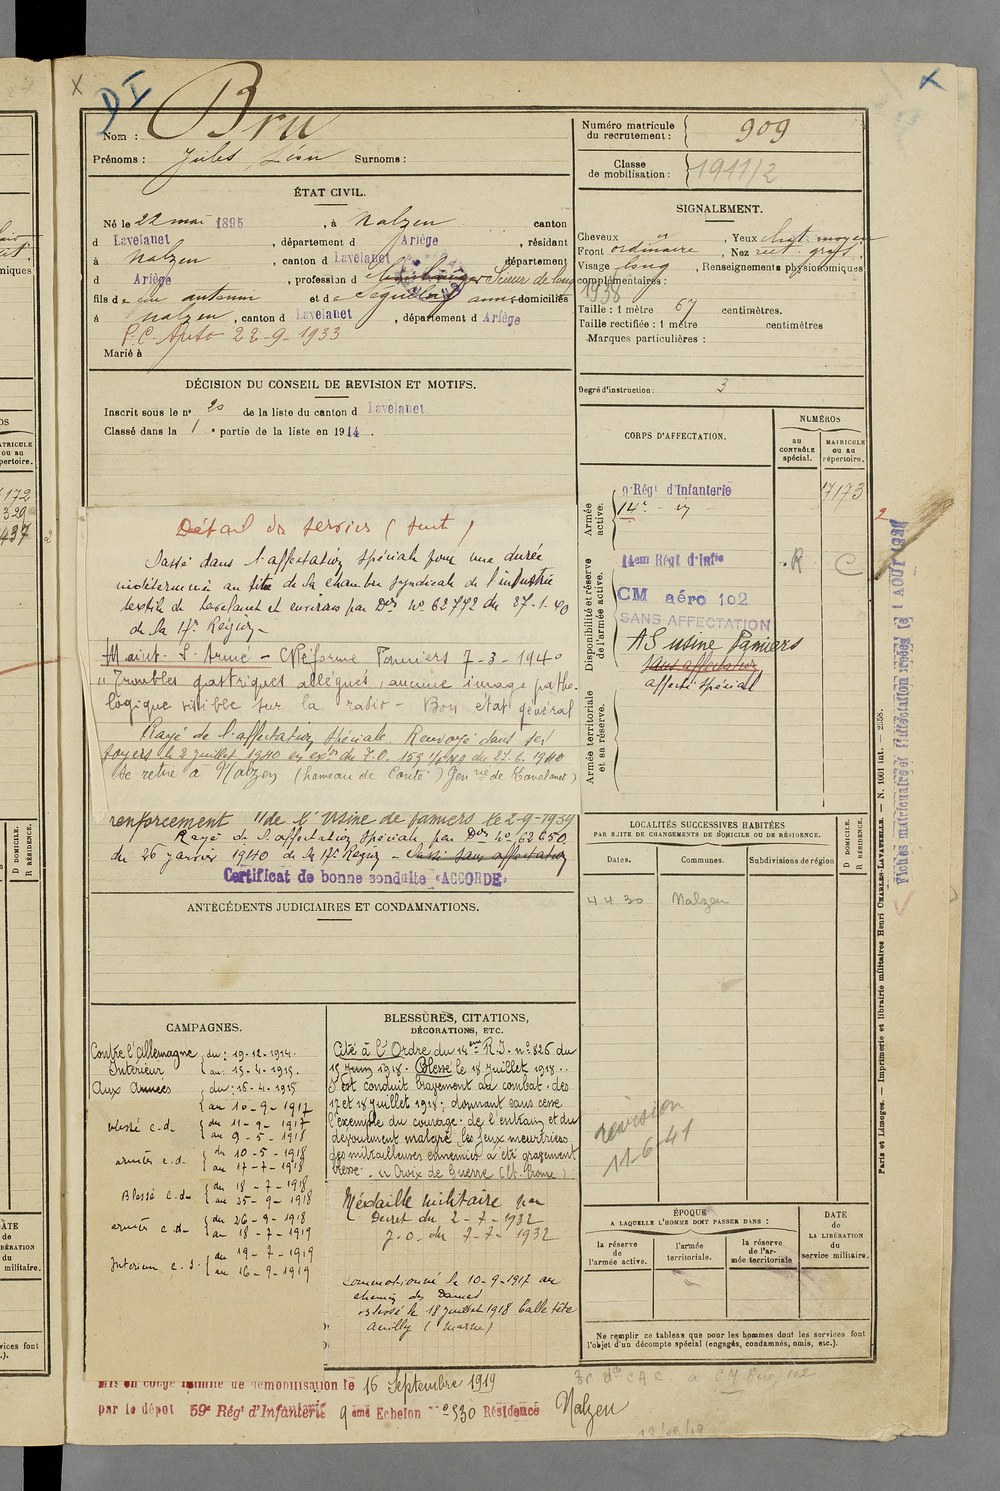 DI
Nom : Bru
Prénoms : Jules, Léon Surnoms :
Numéro matricule du recrutement : 909
Classe de mobilisation : 1911/2
ÉTAT CIVIL.
Né le 22 mai 1895, à Nalzen canton
d Lavelanet, département d Ariège, résidant
à Nalzen, canton d Lavelanet département
d Ariège, profession d Scieur de long
fils de feu antonin et de anne domiciliés
à Nalzen, canton d Lavelanet, département d Ariège
P.C. Auto 22-9-1933
Marié à
SIGNALEMENT.
Cheveux , Yeux chat moyen
Front ordinaire, Nez rect. gros
Visage long, Renseignements physionomiques
complémentaires :
1938
Taille : 1 mètre 67 centimètres.
Taille rectifiée : 1 mètre centimètres
Marques particulières :
Degré d'instruction : 3
DÉCISION DU CONSEIL DE REVISION ET MOTIFS.
Inscrit sous le n° 20 de la liste du canton d Lavelanet
Classé dans la 1e partie de la liste en 1914.
Détail des services (suite)
Passé dans l'affectation spéciale pour une durée
indéterminée au titre de la chambre syndicale de l'industrie
textile de Lavelanet et environs par Don N° 62792 du 27-1-40
de la 17e Région
Maint. S. Armé - C Réforme Pamiers 7-3-1940
"Troubles gastriques allégués, aucune image patho-
logique visible sur la radio - Bon état général
Rayé de l'affectation spéciale. Renvoyé dans ses
foyers le 2 juillet 1940 en exon du T.O. 159 1/EMA du 27.6.1940
Se retire à Nalzen (hameau de Conte) Gen rie de Lavelanet)
renforcement "de l'Usine de Pamiers le 2-9-1939
Rayé de l'affectation spéciale par Don N° 62650
du 26 janvier 1940 de la 17e Région - Passé sans affectation
Certificat de bonne conduite «ACCORDÉ»
CORPS D'AFFECTATION.
NUMÉROS
au CONTRÔLE spécial.
MATRICULE OU AU répertoire.
Armée active.
9e Régt d'Infanterie 7173
14e
Disponibilité et réserve de l'armée active.
14em Régt d'Infie R C
CM aéro 102
SANS AFFECTATION
AS usine Pamiers
sans affectation
affecté spécial
Armée territoriale et sa réserve.
LOCALITÉS SUCCESSIVES HABITÉES
PAR SUITE DE CHANGEMENTS DE DOMICILE OU DE RÉSIDENCE.
Dates. Communes. Subdivisions de région
D DOMICILE. R RÉSIDENCE.
4 4 30 Nalzen
révision
11-6-41
ANTÉCÉDENTS JUDICIAIRES ET CONDAMNATIONS.
CAMPAGNES.
Contre l'Allemagne du : 19-12-1914.
Intérieur au : 15-4-1915.
Aux Armées du : 16-4-1915
au 10-9-1917
blessé c.d. du 11-9-1917
au 9-5-1918
armées c.d. du 10-5-1918
au 17-7-1918
Blessé c.d. du 18-7-1918
au 25-9-1918
armées c.d. du 26-9-1918
au 18-7-1919
Intérieur c.d. du 19-7-1919
au 16-9-1919
BLESSURES, CITATIONS, DÉCORATIONS, ETC.
Cité à l'Ordre du 14eme R.I. n° 826 du
15 juin 1918. Blessé le 18 juillet 1918.
S'est conduit bravement au combat des
17 et 18 juillet 1918 ; donnant sans cesse
l'exemple du courage, de l'entrain et du
dévouement malgré les feux meurtriers
des mitrailleuses ennemies a été gravement
blessé. Croix de Guerre (Et. bronze)
Médaille militaire par
Décret du 2-7-1932
J.O. du 7-7-1932
Commotionné le 10-9-1917 au
chemin des Dames
blessé le 18 juillet 1918 balle tête
(Marne)
ÉPOQUE
A LAQUELLE L'HOMME DOIT PASSER DANS :
la réserve de l'armée active.
l'armée territoriale.
la réserve de l'armée territoriale
DATE de LA LIBÉRATION du service militaire.
Ne remplir ce tableau que pour les hommes dont les services font
l'objet d'un décompte spécial (engagés, condamnés, omis, etc.).
Mis en congé illimité de démobilisation le 16 Septembre 1919
par le dépot 59e Régt d'Infanterie 9eme Echelon n° 530 Résidence Nalzen
Paris et Limoges. — Imprimerie et librairie militaires Henri CHARLES-LAVAUZELLE. — N. 1001 int. — 2558.
172
329
437